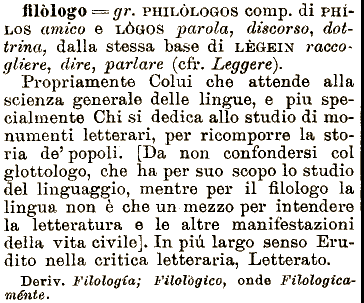 filòlogo = gr. PHILÒLOGOS comp. di PHÍ-
LOS amico e LÒGOS parola, discorso, dot-
trina, dalla stessa base di LÈGEIN racco-
gliere, dire, parlare (cfr. Leggere).
Propriamente Colui che attende alla
scienza generale delle lingue, e piu spe-
cialmente Chi si dedica allo studio di mo-
numenti letterari, per ricomporre la sto-
ria de' popoli. [Da non confondersi col
glottologo, che ha per suo scopo lo studio
del linguaggio, mentre per il filologo la
lingua non è che un mezzo per intendere
la letteratura e le altre manifestazioni
della vita civile]. In piú largo senso Eru-
dito nella critica letteraria, Letterato.
Deriv. Filología; Filològico, onde Filologica-
ménte.